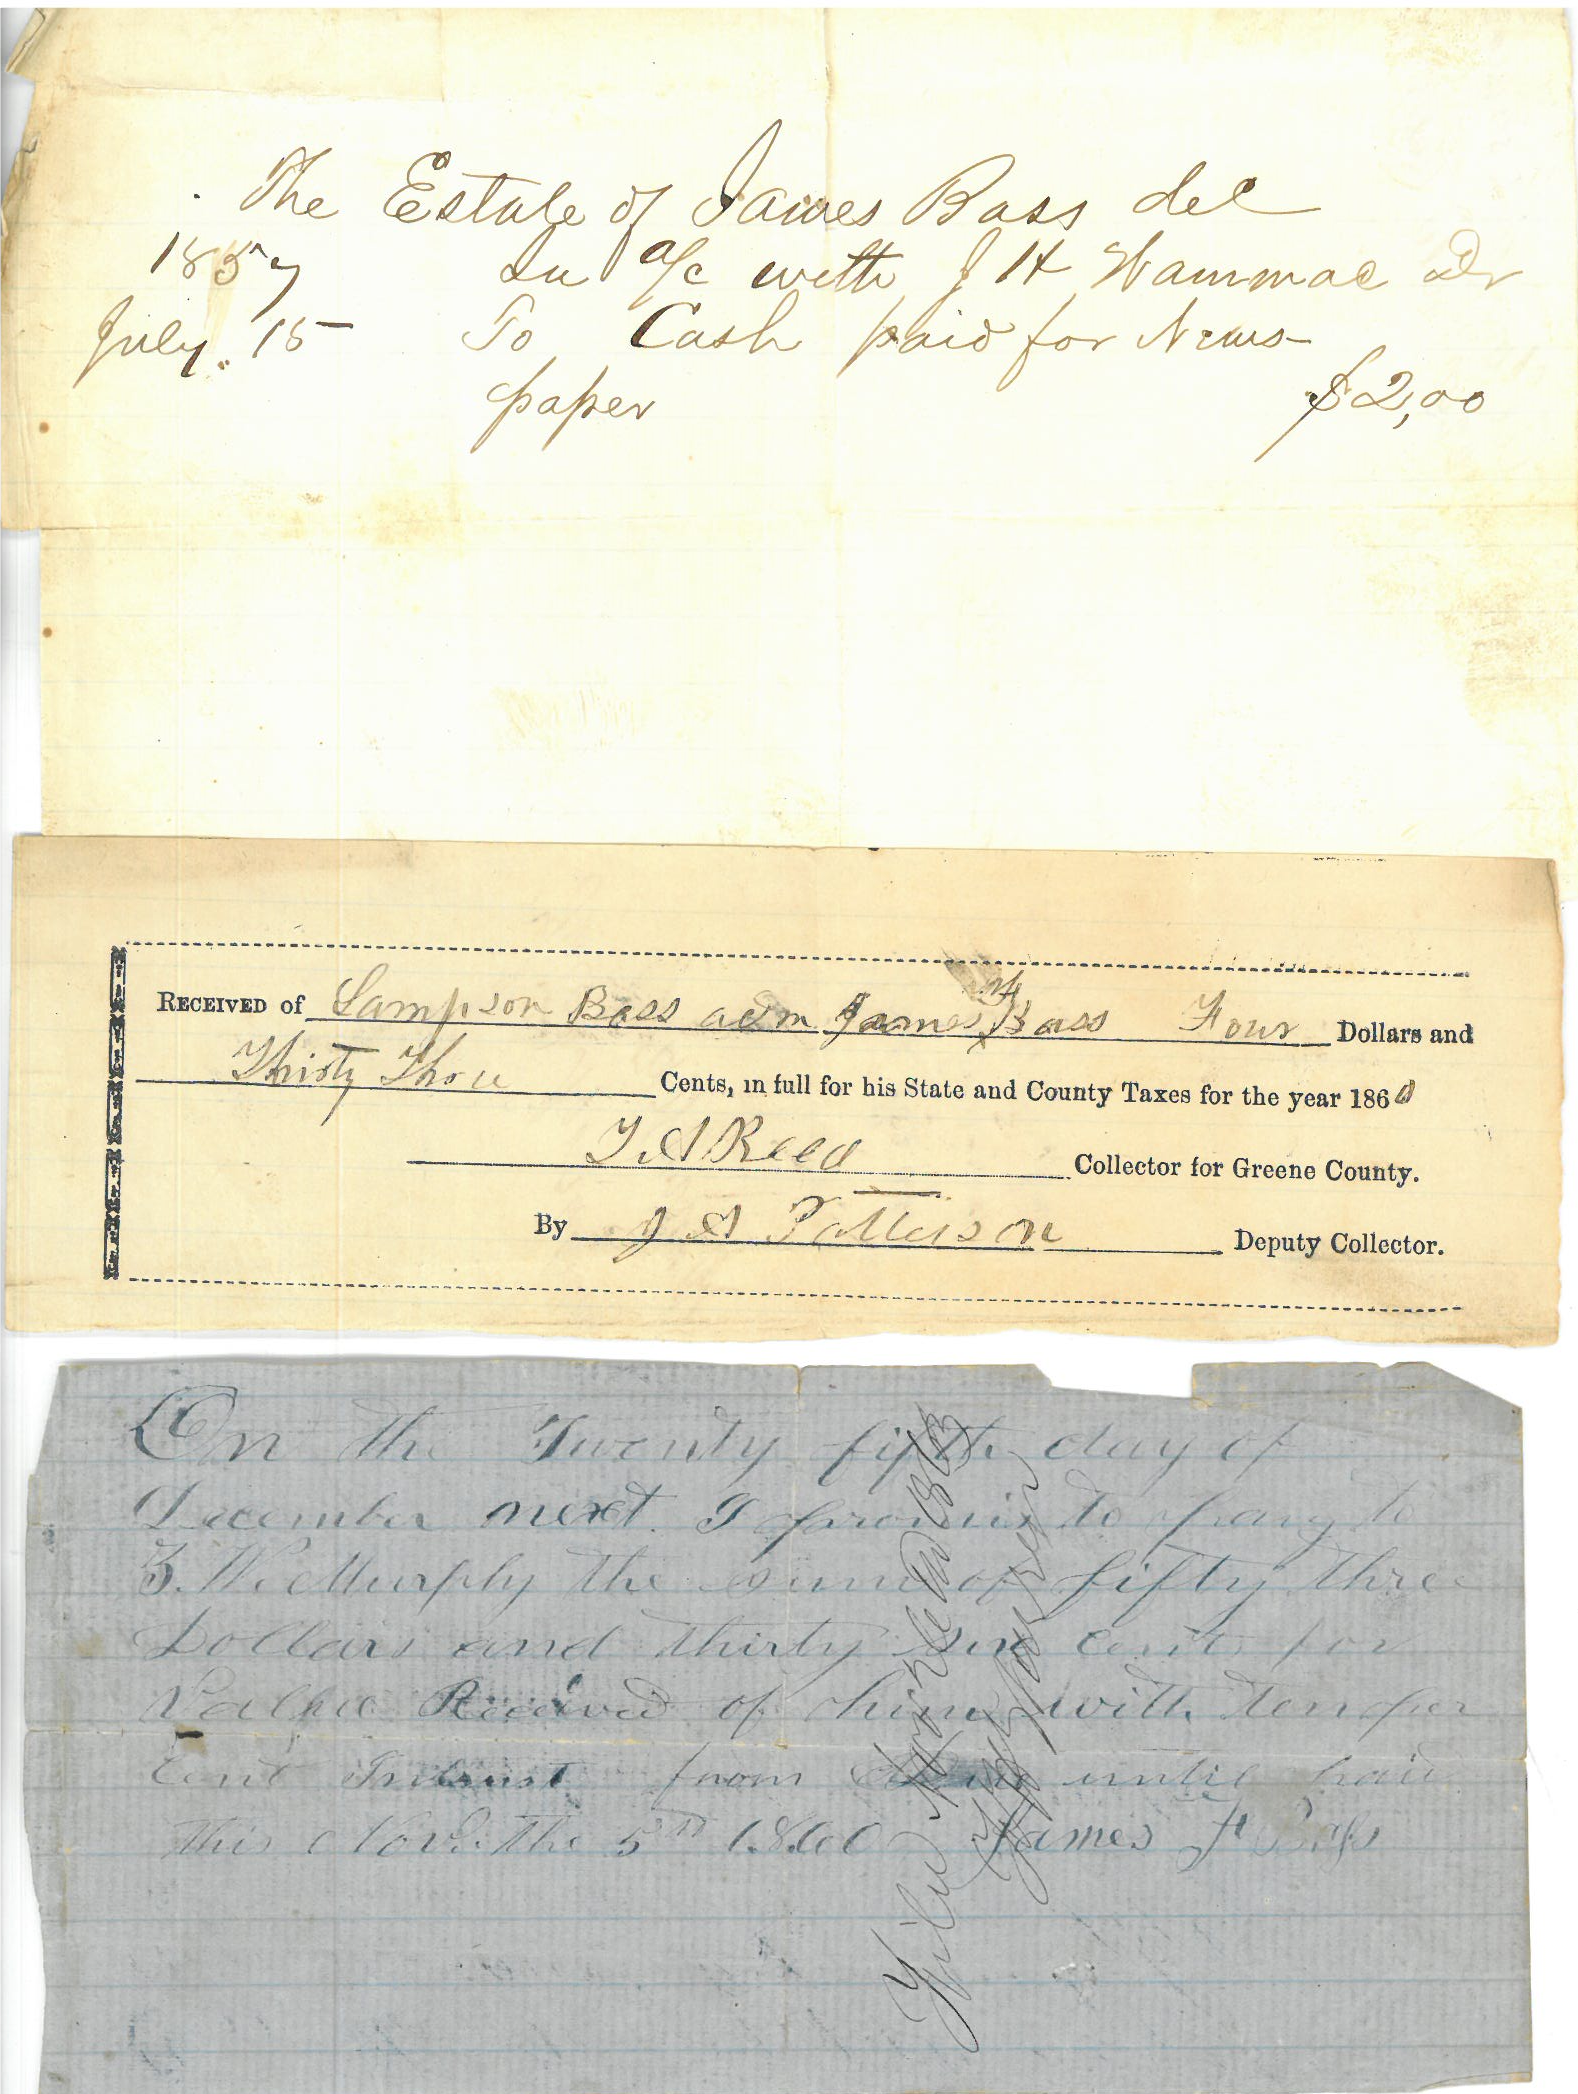 The Estate of James Bass del
1857 In a/c with J H Wammac Dr
July 15 To Cash paid for News-
paper $2,00
RECEIVED of Sampson Bass adm James H Bass Four Dollars and
Thirty Three Cents, in full for his State and County Taxes for the year 1860
T. A Reed Collector for Greene County.
By J A Patterson Deputy Collector.
On the Twenty fifth day of
December next I promis to pay to
F. W. Murphy the sum of fifty three
Dollars and thirty six cents for
Value Received of him with ten per
cent Intrust from date until paid
this Nov. the 5th 1860 James H Bass
1863